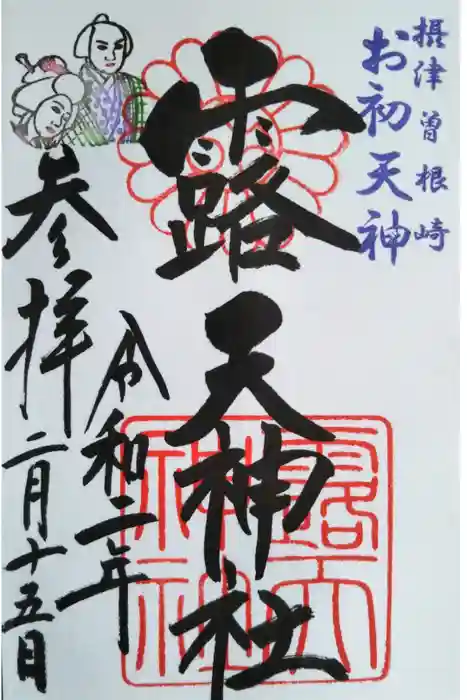 摂津 曽根崎
お初天神
露天神社
令和二年
二月十五日
参拝
露天
神社